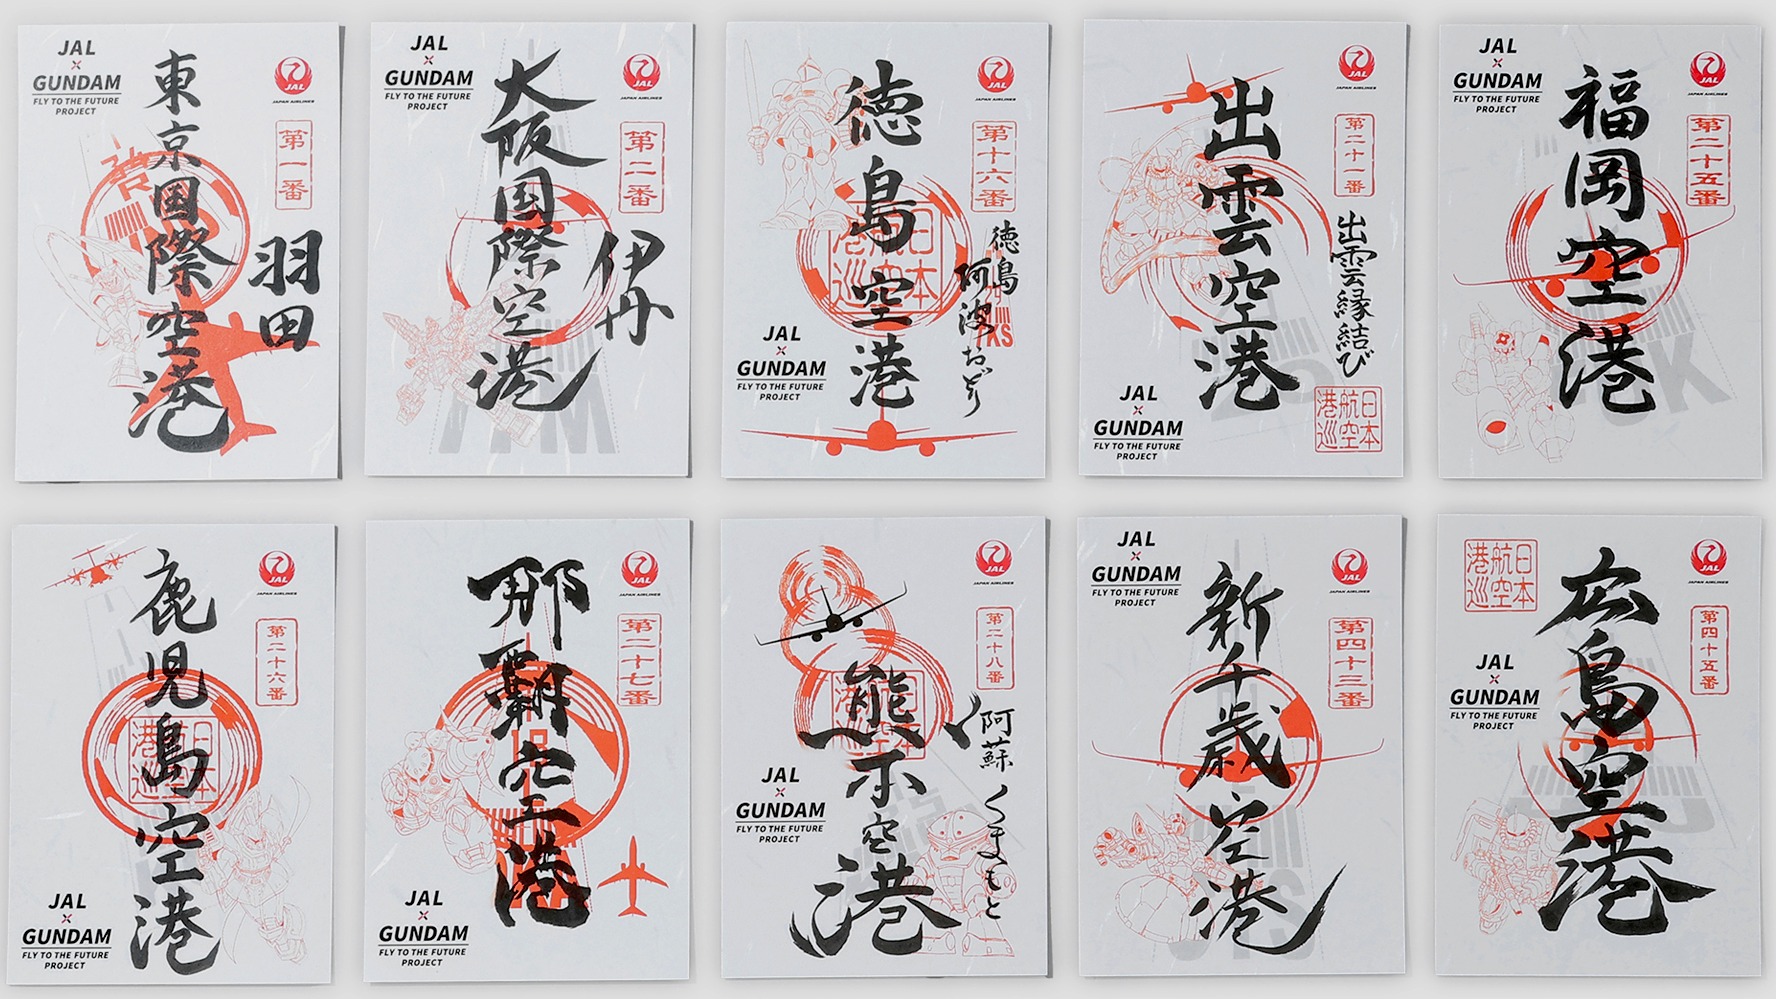 JAL
×
GUNDAM
FLY TO THE FUTURE
PROJECT
東京国際空港
羽田
第一番
JAL
JAPAN AIRLINES
JAL
×
GUNDAM
FLY TO THE FUTURE
PROJECT
大阪国際空港
伊丹
第二番
JAL
JAPAN AIRLINES
徳島空港
JAL
JAPAN AIRLINES
第十六番
徳島
阿波おどり
日本
航空
港巡
KS
JAL
×
GUNDAM
FLY TO THE FUTURE
PROJECT
出雲空港
JAL
JAPAN AIRLINES
第二十一番
出雲縁結び
日本
航空
港巡
JAL
×
GUNDAM
FLY TO THE FUTURE
PROJECT
JAL
×
GUNDAM
FLY TO THE FUTURE
PROJECT
福岡空港
JAL
JAPAN AIRLINES
第二十五番
K
鹿児島空港
JAL
JAPAN AIRLINES
第二十六番
日本
航空
港巡
JAL
×
GUNDAM
FLY TO THE FUTURE
PROJECT
那覇空港
JAL
JAPAN AIRLINES
第二十七番
JAL
×
GUNDAM
FLY TO THE FUTURE
PROJECT
熊本空港
JAL
JAPAN AIRLINES
第二十八番
阿蘇
くまもと
JAL
×
GUNDAM
FLY TO THE FUTURE
PROJECT
JAL
×
GUNDAM
FLY TO THE FUTURE
PROJECT
新千歳空港
JAL
JAPAN AIRLINES
第四十三番
日本
航空
港巡
広島空港
JAL
JAPAN AIRLINES
第四十五番
JAL
×
GUNDAM
FLY TO THE FUTURE
PROJECT